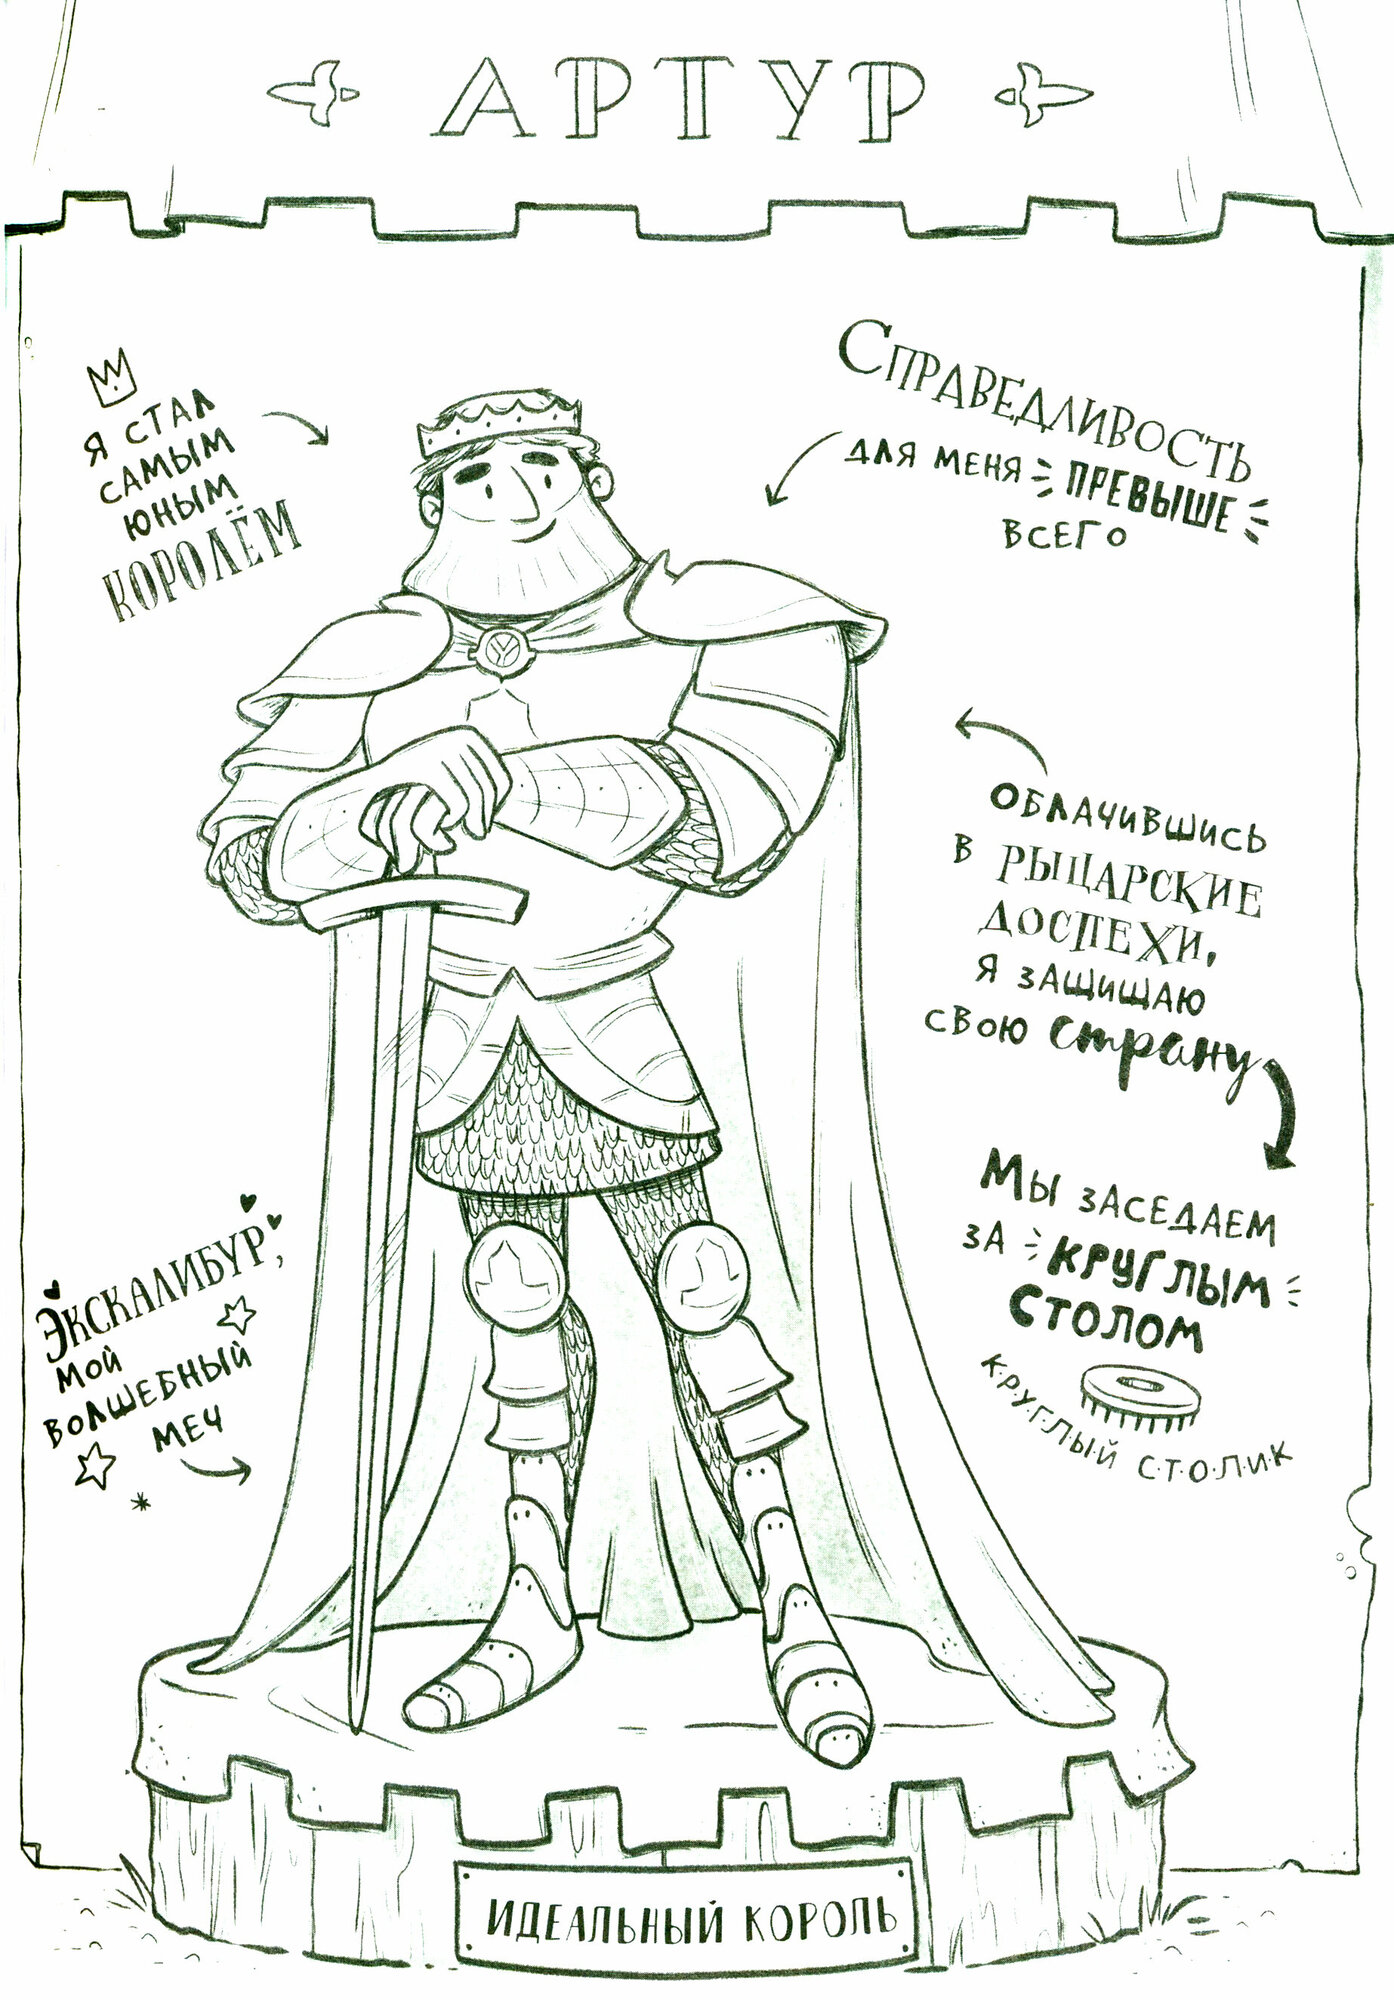 АРТУР
Я СТАЛ
САМЫМ
ЮНЫМ
КОРОЛЁМ
СПРАВЕДЛИВОСТЬ
ДЛЯ МЕНЯ ПРЕВЫШЕ
ВСЕГО
ОБЛАЧИВШИСЬ
В РЫЦАРСКИЕ
ДОСПЕХИ,
Я ЗАЩИЩАЮ
СВОЮ страну
МЫ ЗАСЕДАЕМ
ЗА КРУГЛЫМ
СТОЛОМ
К·Р·У·Г·Л·Ы·Й С·Т·О·Л·И·К
ЭКСКАЛИБУР,
МОЙ
ВОЛШЕБНЫЙ
МЕЧ
ИДЕАЛЬНЫЙ КОРОЛЬ